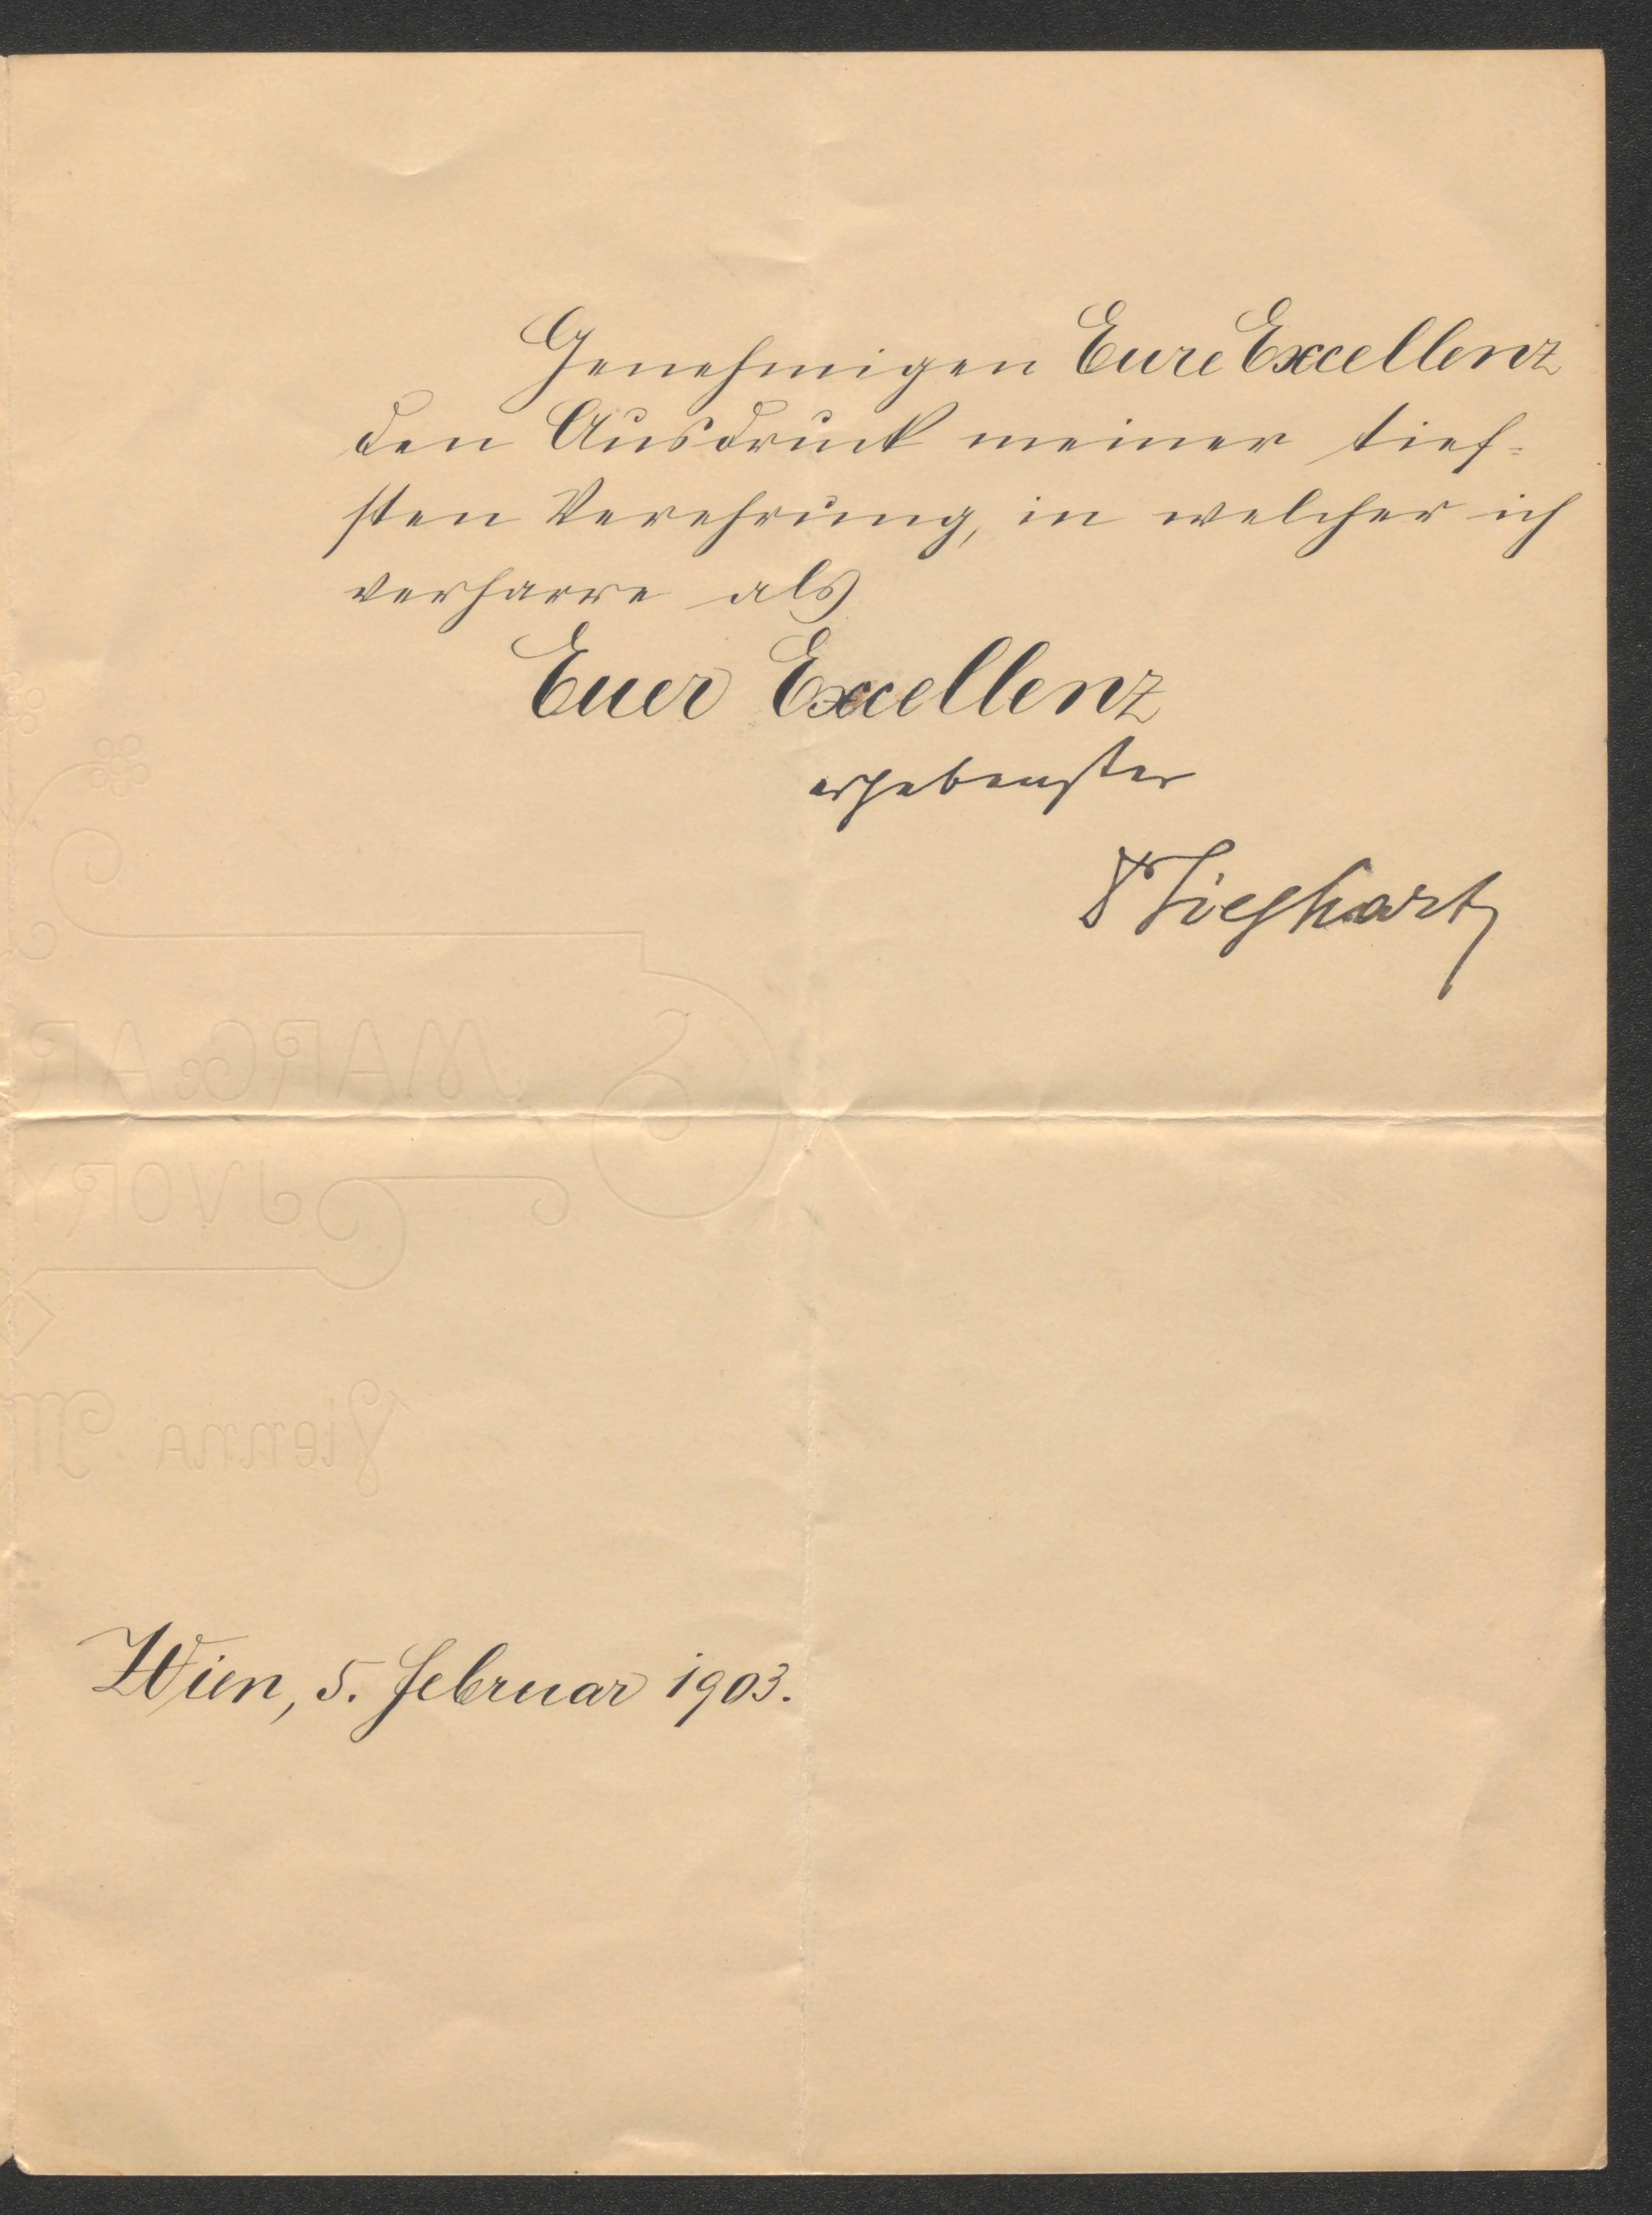 Genehmigen Eure Excellenz
den Ausdruck meiner tief=
sten Verehrung, in welcher ich
verharre als
Euer Excellenz
ergebenster
Dr Sieghart
MARG
IVORY
Vienna M
Wien, 5. Februar 1903.